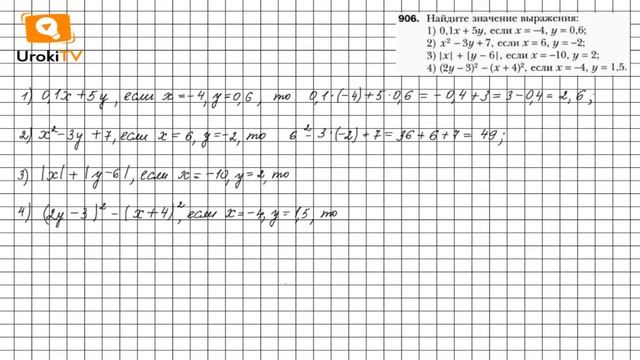 UrokiTV
906. Найдите значение выражения:
1) 0,1x + 5y, если x = –4, y = 0,6;
2) x² – 3y + 7, если x = 6, y = –2;
3) |x| + |y – 6|, если x = –10, y = 2;
4) (2y – 3)² – (x + 4)², если x = –4, y = 1,5.
1) 0,1x + 5y, если x = -4, y = 0,6, то 0,1·(-4) + 5·0,6 = -0,4 + 3 = 3 - 0,4 = 2,6;
2) x² - 3y + 7, если x = 6, y = -2, то 6² - 3·(-2) + 7 = 36 + 6 + 7 = 49;
3) |x| + |y - 6|, если x = -10, y = 2, то
4) (2y - 3)² - (x + 4)², если x = -4, y = 1,5, то